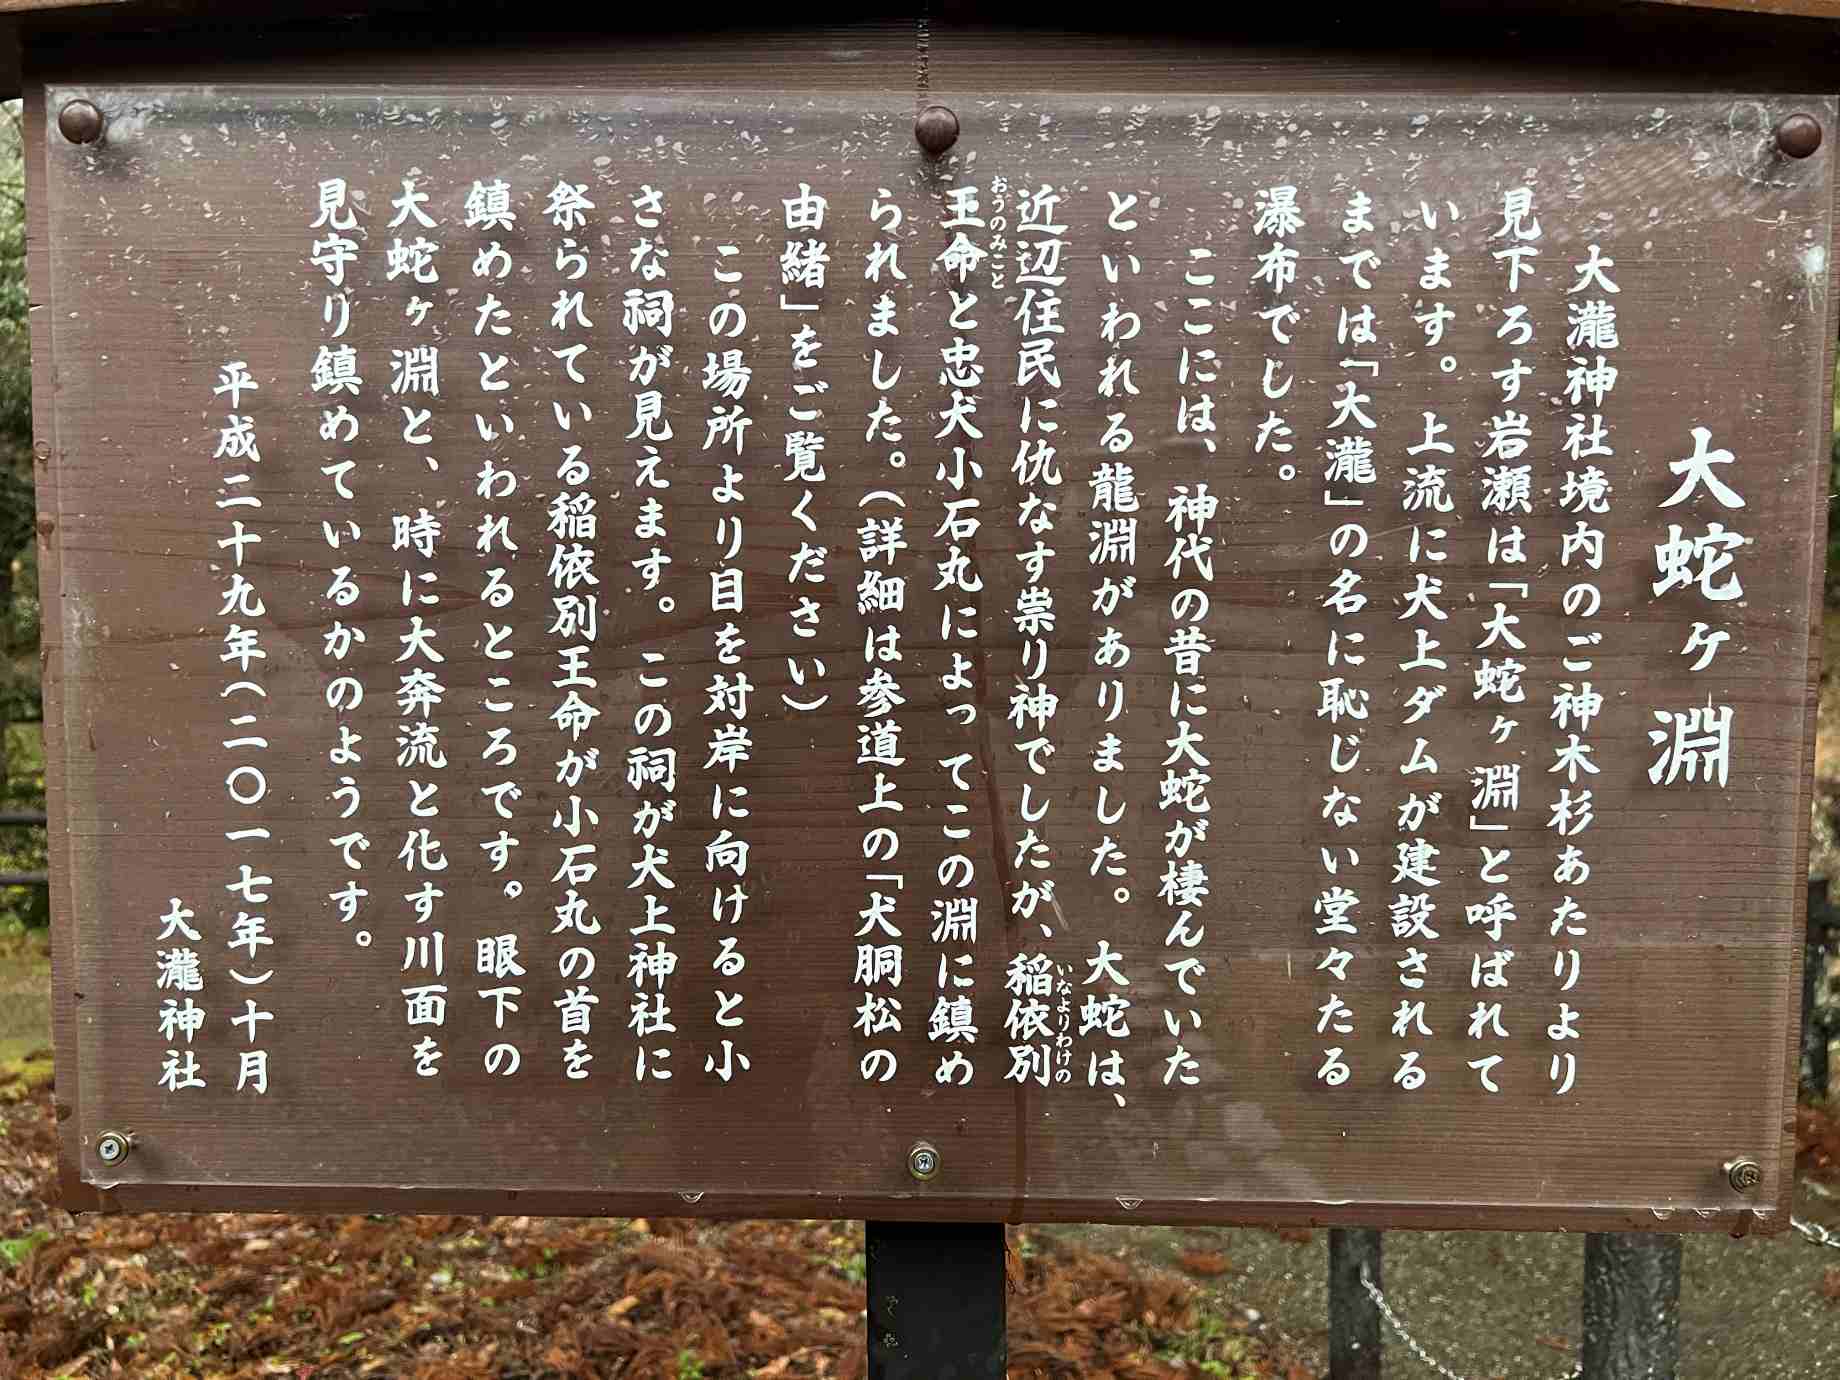 大蛇ヶ淵
大瀧神社境内のご神木杉あたりより
見下ろす岩瀬は「大蛇ヶ淵」と呼ばれて
います。上流に犬上ダムが建設される
までは「大瀧」の名に恥じない堂々たる
瀑布でした。
ここには、神代の昔に大蛇が棲んでいた
といわれる龍淵がありました。大蛇は、
近辺住民に仇なす祟り神でしたが、稲依別
いなよりわけの
王命と忠犬小石丸によってこの淵に鎮め
おうのみこと
られました。(詳細は参道上の「犬胴松の
由緒」をご覧ください)
この場所より目を対岸に向けると小
さな祠が見えます。この祠が犬上神社に
祭られている稲依別王命が小石丸の首を
鎮めたといわれるところです。眼下の
大蛇ヶ淵と、時に大奔流と化す川面を
見守り鎮めているかのようです。
平成二十九年(二〇一七年)十月
大瀧神社